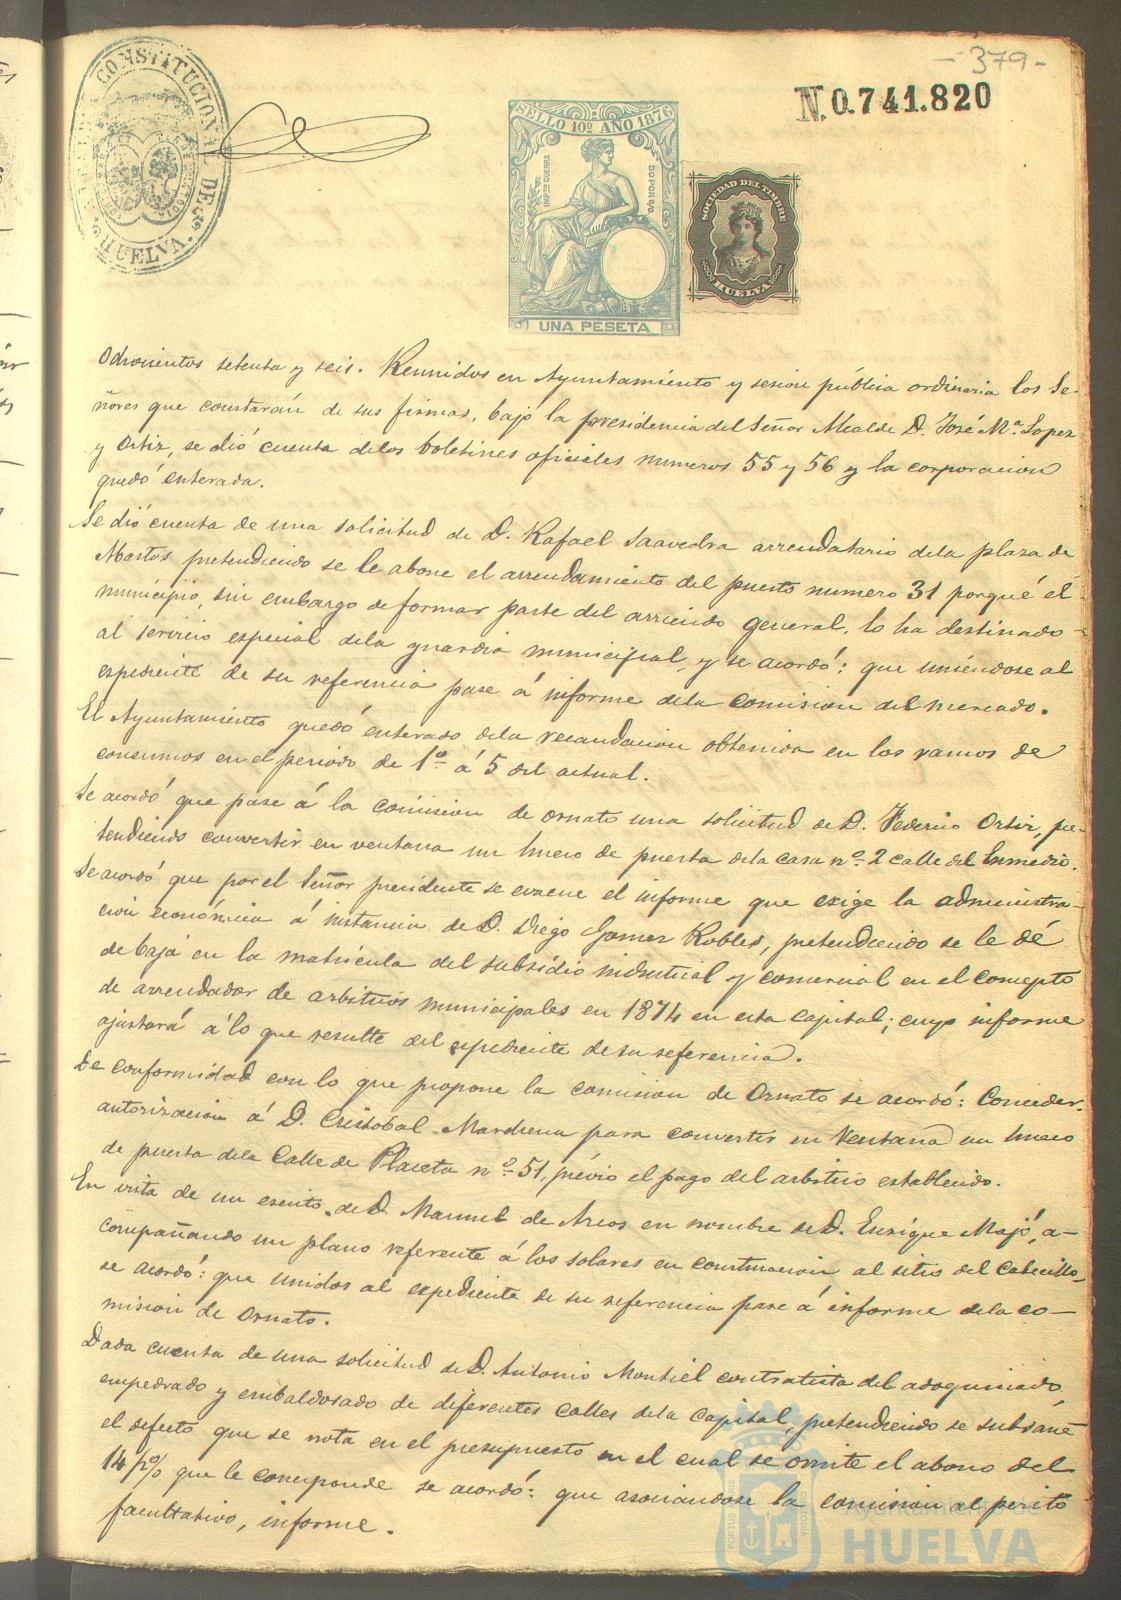 - 379 -
N. 0.741.820
CONSTITUCIONAL DE HUELVA.
SELLO 10º AÑO 1876
IMPTO GUERRA
50 POR %
UNA PESETA
SOCIEDAD DEL TIMBRE
HUELVA
Ochocientos setenta y seis. Reunidos en Ayuntamiento y sesion pública ordinaria los Se-
ñores que constarán de sus firmas, bajo la presidencia del Señor Alcalde D. José Mª. Lopez
y Ortiz, se dió cuenta delos boletines oficiales numeros 55 y 56 y la corporacion
quedó enterada.
Se dió cuenta de una solicitud de D. Rafael Saavedra arrendatario dela plaza de
Abastos pretendiendo se le abone el arrendamiento del puesto numero 31 porqué el
municipio, sin embargo de formar parte del arriendo general, lo ha destinado
al servicio especial dela guardia municipal, y se acordó: que uniéndose al
espediente de su referencia pase á informe dela comision del mercado.
El Ayuntamiento quedó enterado dela recaudacion obtenida en los ramos de
consumos en el periodo de 1º á 5 del actual.
Se acordó que pase á la comision de ornato una solicitud de D. Federico Ortiz, pre-
tendiendo convertir en ventana un hueco de puerta dela casa nº 2 calle del Enmedio.
Se acordó que por el Señor presidente se evacue el informe que exige la administra-
cion económica á instancia de D. Diego Gomez Robles, pretendiendo se le dé
de baja en la matricula del subsidio industrial y comercial en el concepto
de arrendador de arbitrios municipales en 1874 en esta capital; cuyo informe
ajustará á lo que resulte del espediente de su referencia.
De conformidad con lo que propone la comision de Ornato se acordó: Conceder
autorizacion á D. Cristobal Marchena para convertir en Ventana un hueco
de puerta dela Calle de Placeta nº 51, previo el pago del arbitrio establecido.
En vista de un escrito de D. Manuel de Arcos en nombre de D. Enrique Majó, a-
compañando un plano referente á los solares en construccion al sitio del Cabecillo,
se acordó: que unidos al espediente de su referencia pase á informe dela co-
mision de Ornato.
Dada cuenta de una solicitud de D. Antonio Montiel contratista del adoquinado
empedrado y embaldosado de diferentes calles dela Capital, pretendiendo se subsane
el defecto que se nota en el presupuesto en el cual se omite el abono del
14 p% que le corresponde se acordó: que asociándose la comision al perito
facultativo, informe.
Ayuntamiento de
HUELVA